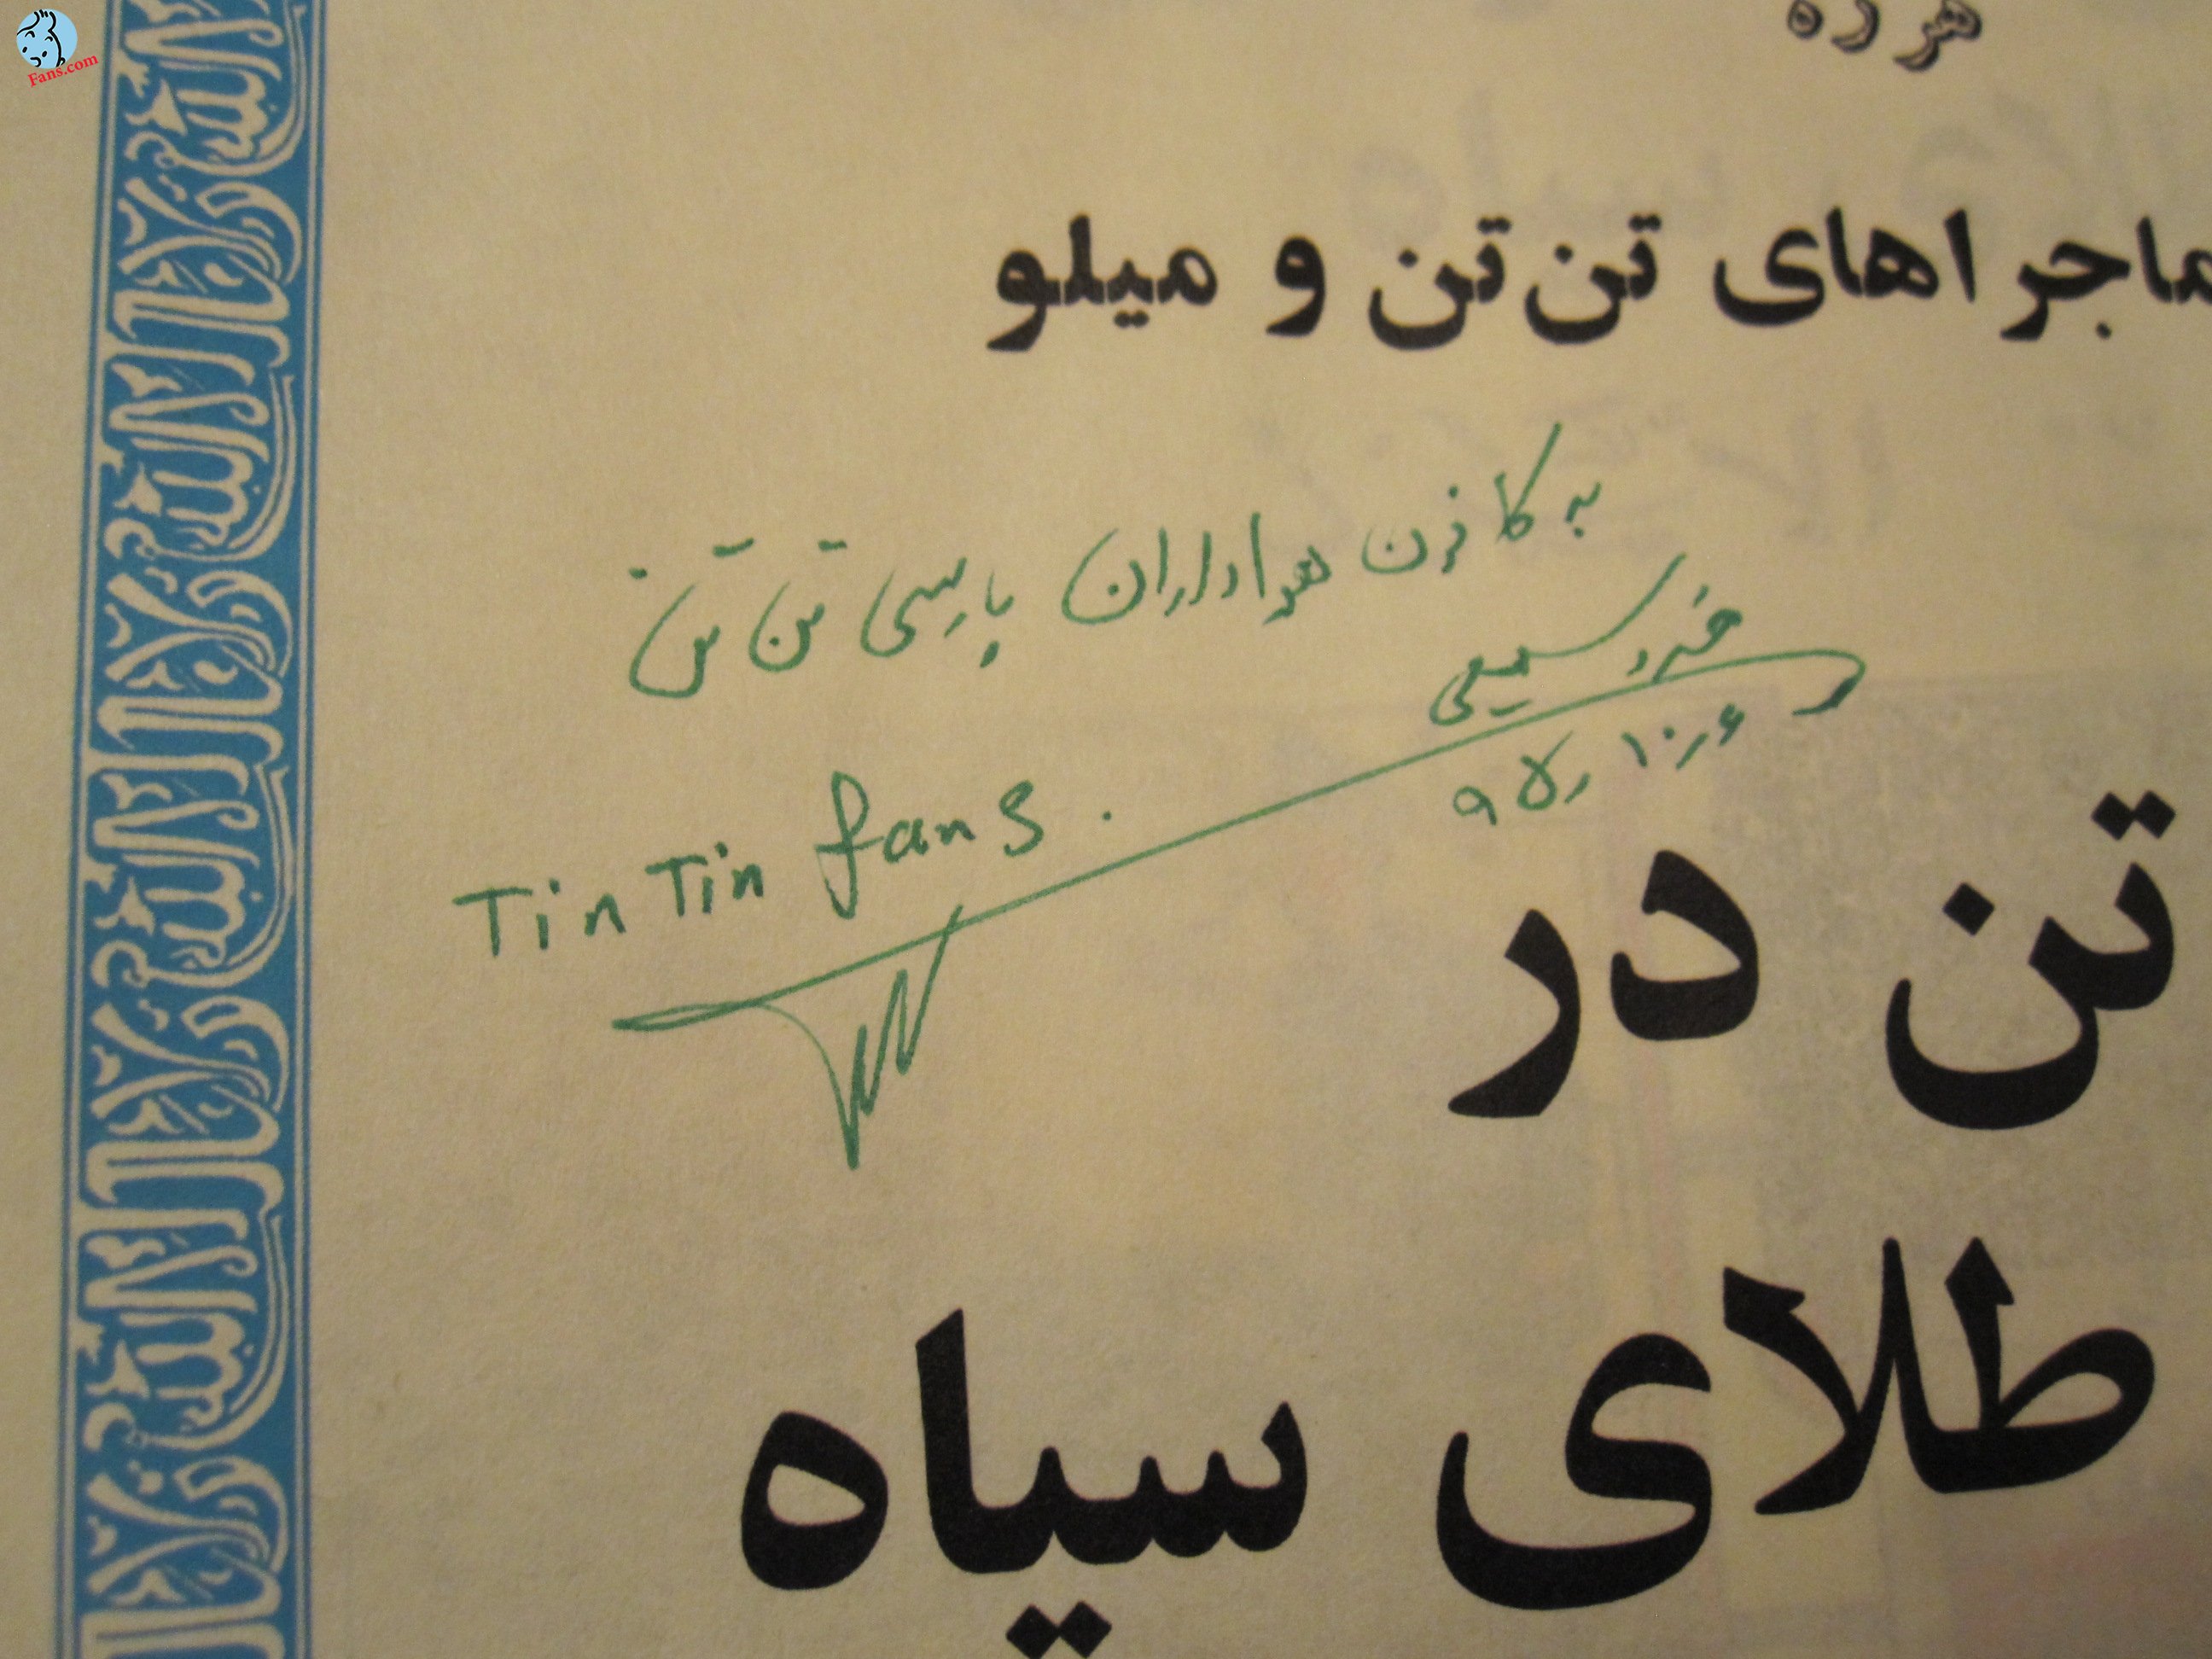 Fans.com
هرژه
ماجراهای تن‌تن و میلو
به کانون هواداران پارسی تن تن
خسرو سمیعی
۹۵ر۱۰ر۶
TinTin fans.
تن در
طلای سیاه